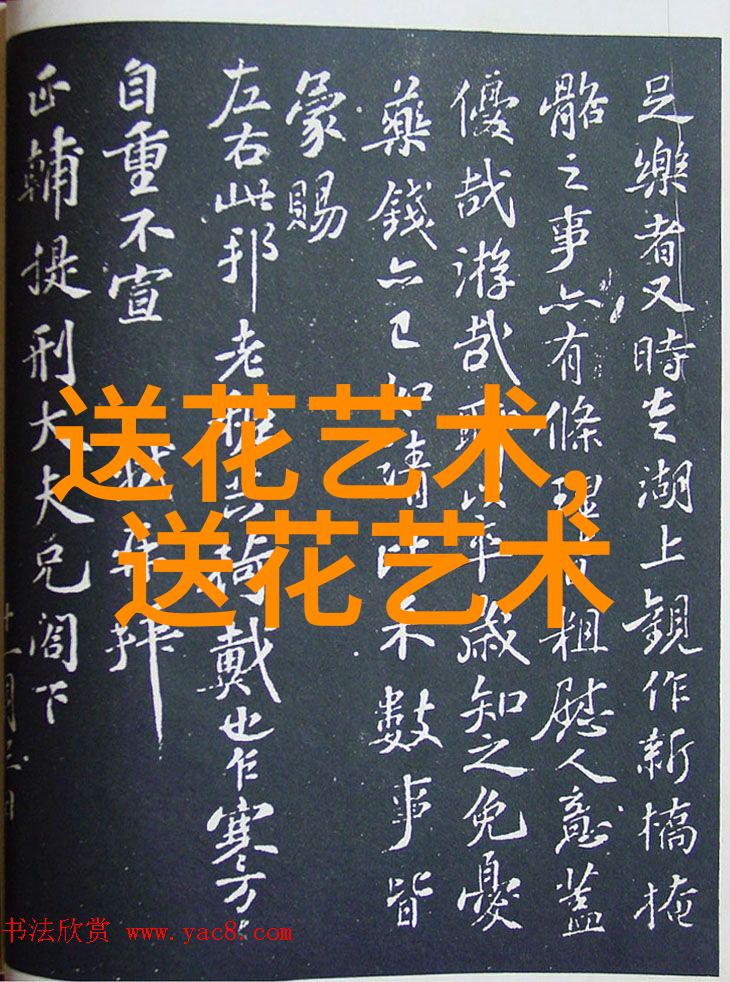 足樂者又時走湖上觀作新橋掩
骼之事亦有條理皆粗慰人意蓋
優哉游哉聊以卒歲知之免憂
藥錢亦已如請比來數事皆
蒙賜
左右此邦老稚共荷戴也乍寒万〻
自重不宣 軾再拜
正輔提刑大夫兄閣下
送花艺术,
送花艺术
书法欣赏 www.yac8.com